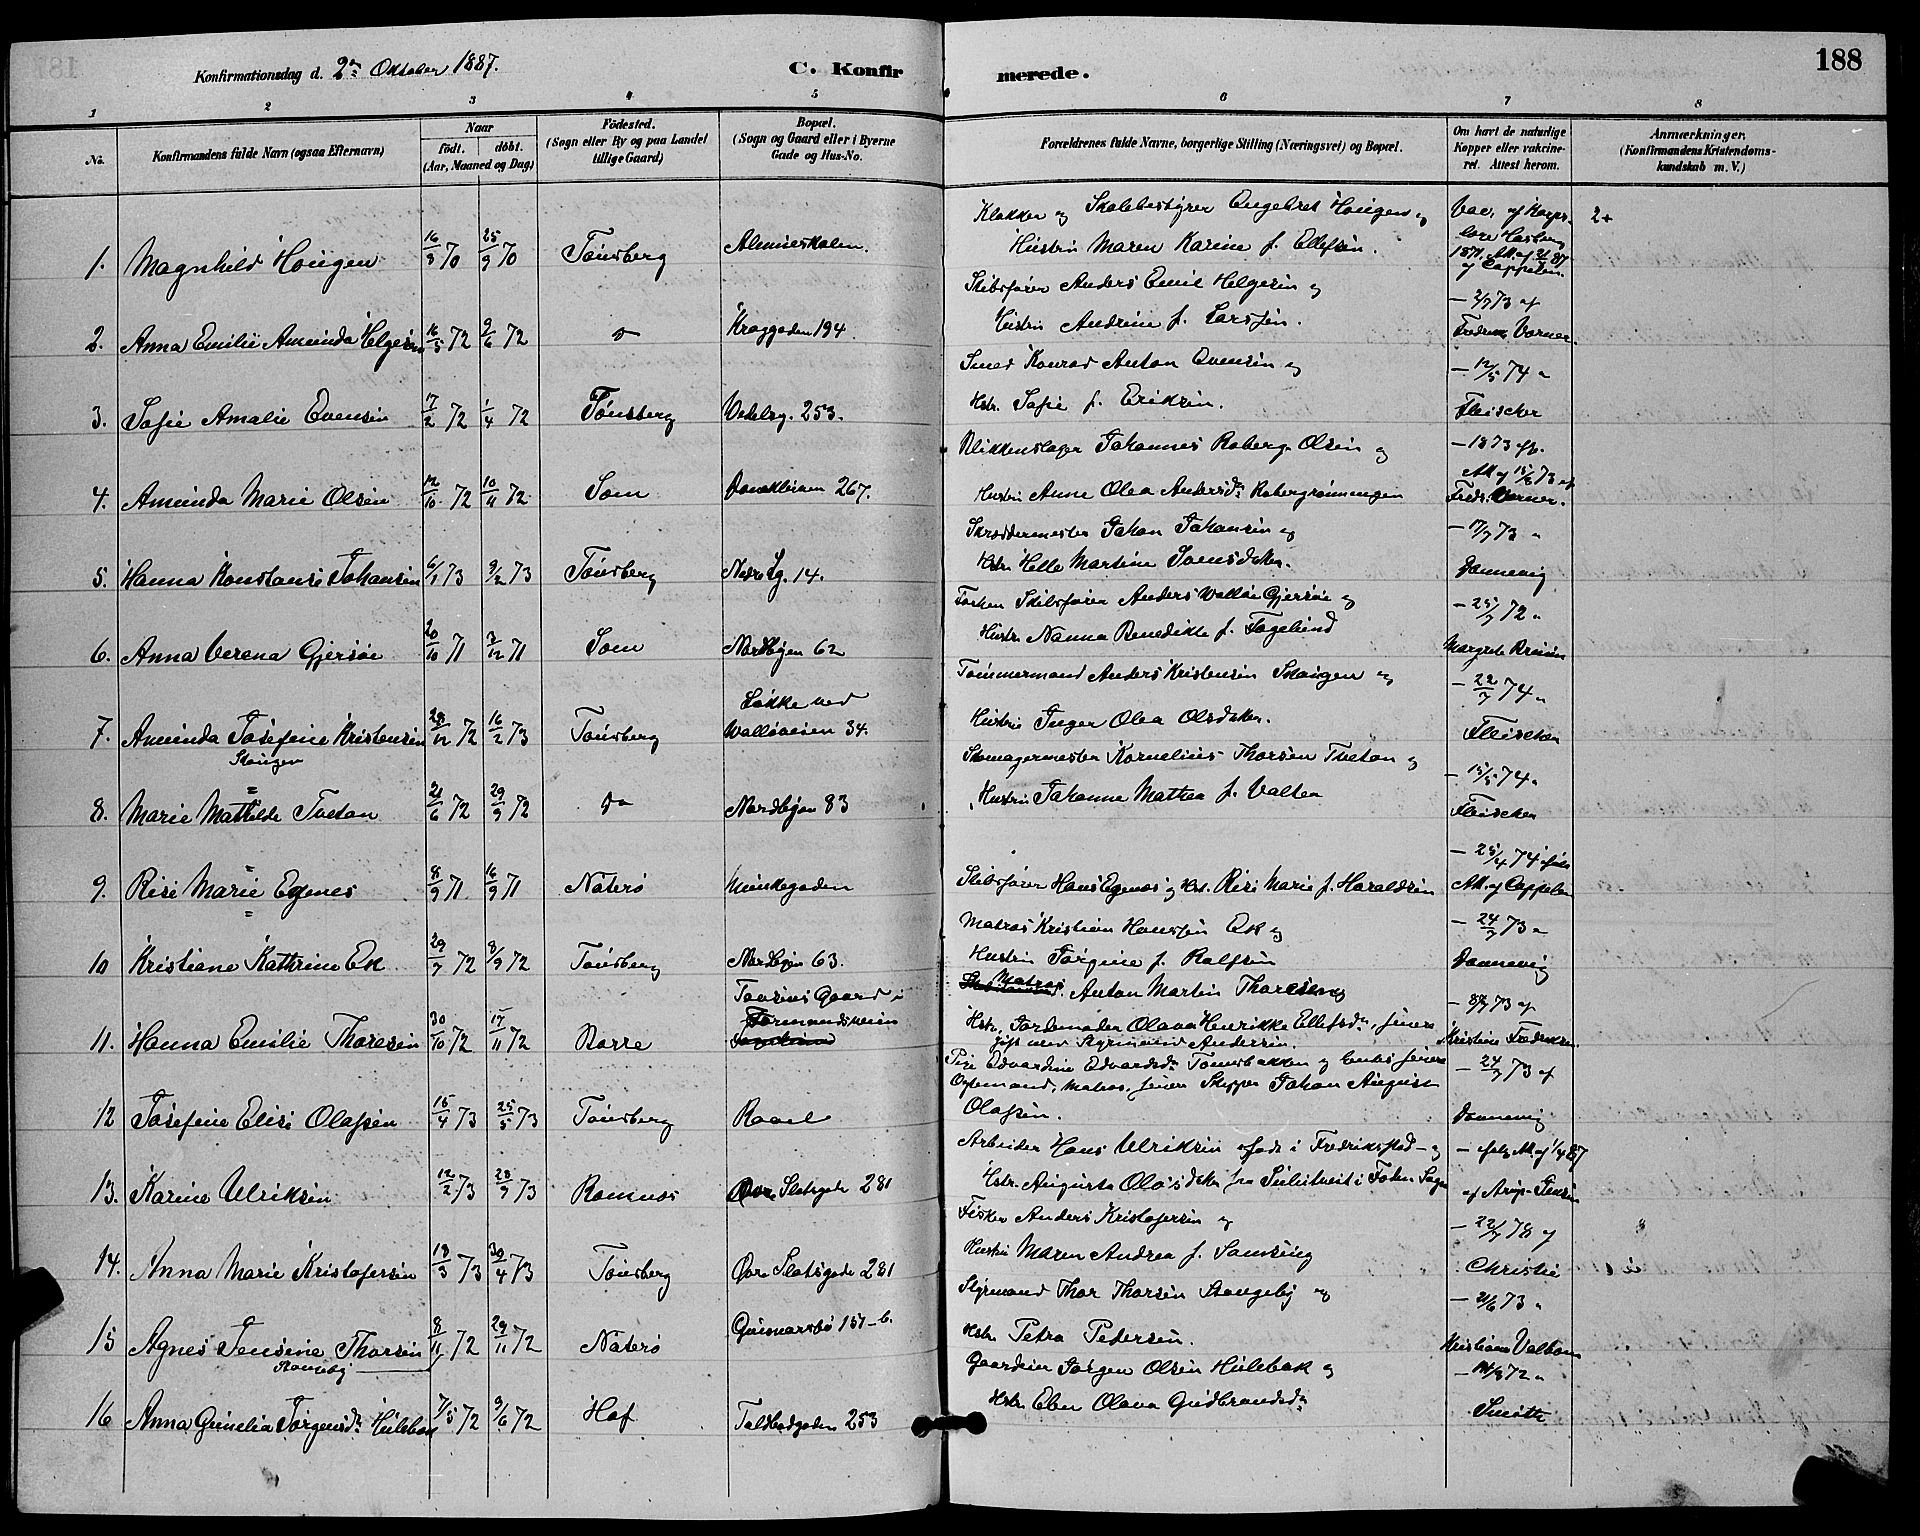 Konfirmationsdag d. 2den Oktober 1887.
C. Konfirmerede.
188
1 2 3 4 5 6 7 8
No.
Konfirmandens fulde Navn (ogsaa Efternavn)
Naar
födt. döbt.
(Aar, Maaned og Dag)
Födested.
(Sogn eller By og paa Landet
tillige Gaard)
Bopæl.
(Sogn og Gaard eller i Byerne
Gade og Hus-No.
Forældrenes fulde Navne, borgerlige Stilling (Næringsvei) og Bopæl.
Om havt de naturlige
Kopper eller vakcine-
ret. Attest herom.
Anmærkninger.
(Konfirmandens Kristendoms-
kundskab m. V.)
1. Magnhild Hougen 16/8 70 25/9 70 Tönsberg Almueskolen.
Klokker og Skolebestyrer Engebret Hougen og
Hustru Maren Karine f. Ellefsen.
Vac. af
1871. Att. af
af Cappelen.
2+
2. Anna Emilie Amunda Helgesen 16/5 72 9/6 72 do Kraggaden 194
Skibsfører Anders Emil Helgesen og
Hustru Andrine f. Larssen.
— 2/7 73 af
Fredrik Vorner.
3. Sofie Amalie Evensen 17/2 72 1/4 72 Tönsberg Vedelsg. 253.
Smed Konrad Anton Evensen og
Hstr. Sofie f. Eriksen.
— 12/5 74 "
Fleischer
4. Amunda Marie Olsen 12/10 72 10/11 72 Sem 267.
Blikkenslager Johannes Roberg Olsen og
Hustru Anne Olea Andersdr. Robergrønningen
— 1873 af
Att. af 15/8 73 af
Fredr. Vorner.
5. Hanna Konstanse Johansen 6/1 73 9/2 73 Tönsberg Nedre Lg. 14.
Skræddermester Johan Johansen og
Hstr. Helle Martine Svensdatter.
— 17/7 73 "
Dannevig
6. Anna Verena Gjersøe 20/10 71 3/12 71 Sem Nordbyen 62
Forhen Skibsfører Anders Walløe Gjersøe og
Hustr. Nanna Benedikte f. Fogelund
— 25/7 72 "
Margrete
7. Amunda Josefine Kristensen 28/12 72 16/2 73 Tönsberg
Skougen
Løkke ved
Walløveien 34.
Tømmermand Anders Kristensen Skougen og
Hustru Inger Olea Olsdatter.
— 22/7 74 "
Fleischer
8. Marie Mathilde Tveten 21/6 72 29/9 72 do Nordbyen 83
Skomagermester Kornelius Thorsen Tveten og
Hustru Johanne Mathea f. Valter
— 15/5 74 "
Fleischer
9. Risi Marie Egenes 8/9 71 16/9 71 Nøterø Munkegaden
Skibsfører Hans Egenes og Hst. Risi Marie f. Haraldsen
— 25/4 74 ifølge
Att. af Cappelen
10 Kristiane Kathrine Ek 29/7 72 8/9 72 Tönsberg Nordbyen 63.
Matros Kristian Hanssen Ek og
Hustru Jørgine f. Rolfsen
— 24/7 73 "
Dannevig
11. Hanna Emilie Thoresen 30/10 72 17/11 72 Borre
Gaard i
Matros Anton Martin Thoresen og
Hstr. Jordemoder Olava Henrikke Ellefsdr., senere
gift med Styrmand Andersen.
— 8/7 73 af
Kristine Fredriksen.
12 Josefine Elise Olassen 15/4 73 25/5 73 Tönsberg Roael
Pige Edvardine Edvardsdr. Tomsbakken og hendes senere
Matros, senere Skipper Johan August
Olassen.
— 24/7 73 af
Dannevig
13. Karine Ulriksen 12/2 73 28/9 73 Ramnæs Øvre Slotsgade 281
Arbeider Hans Ulriksen født i Fredrikstad — og
Hstr. Augusta Olsdatter fra i Foten Sogn
— ifølge Att. af 1/4 87
af Arup-Jensen
14. Anna Marie Kristofersen 18/3 73 30/4 73 Tönsberg Øvre Slotsgade 281
Fisker Anders Kristofersen og
Hustru Maren Andrea f. Samsing
— 22/7 78 af
Christie
15 Agnes Jensine Thorsen 8/11 72 29/11 72 Nøterø Gunnarsbø 157-b.
Stangeby
Styrmand Thor Thorsen Stangeby og
Hstr. Petra Pedersen.
— 2/6 73 "
Kristiane Valbom
16 Anna Gunelia Jørgensdr. Hulebak 7/5 72 9/6 72 Hof Toldbodgaden 253
Gaardeier Jørgen Olsen Hulebak og
Hstr. Eben Olava Gudbrandsdr.
— 14/9 72 "
Smøth